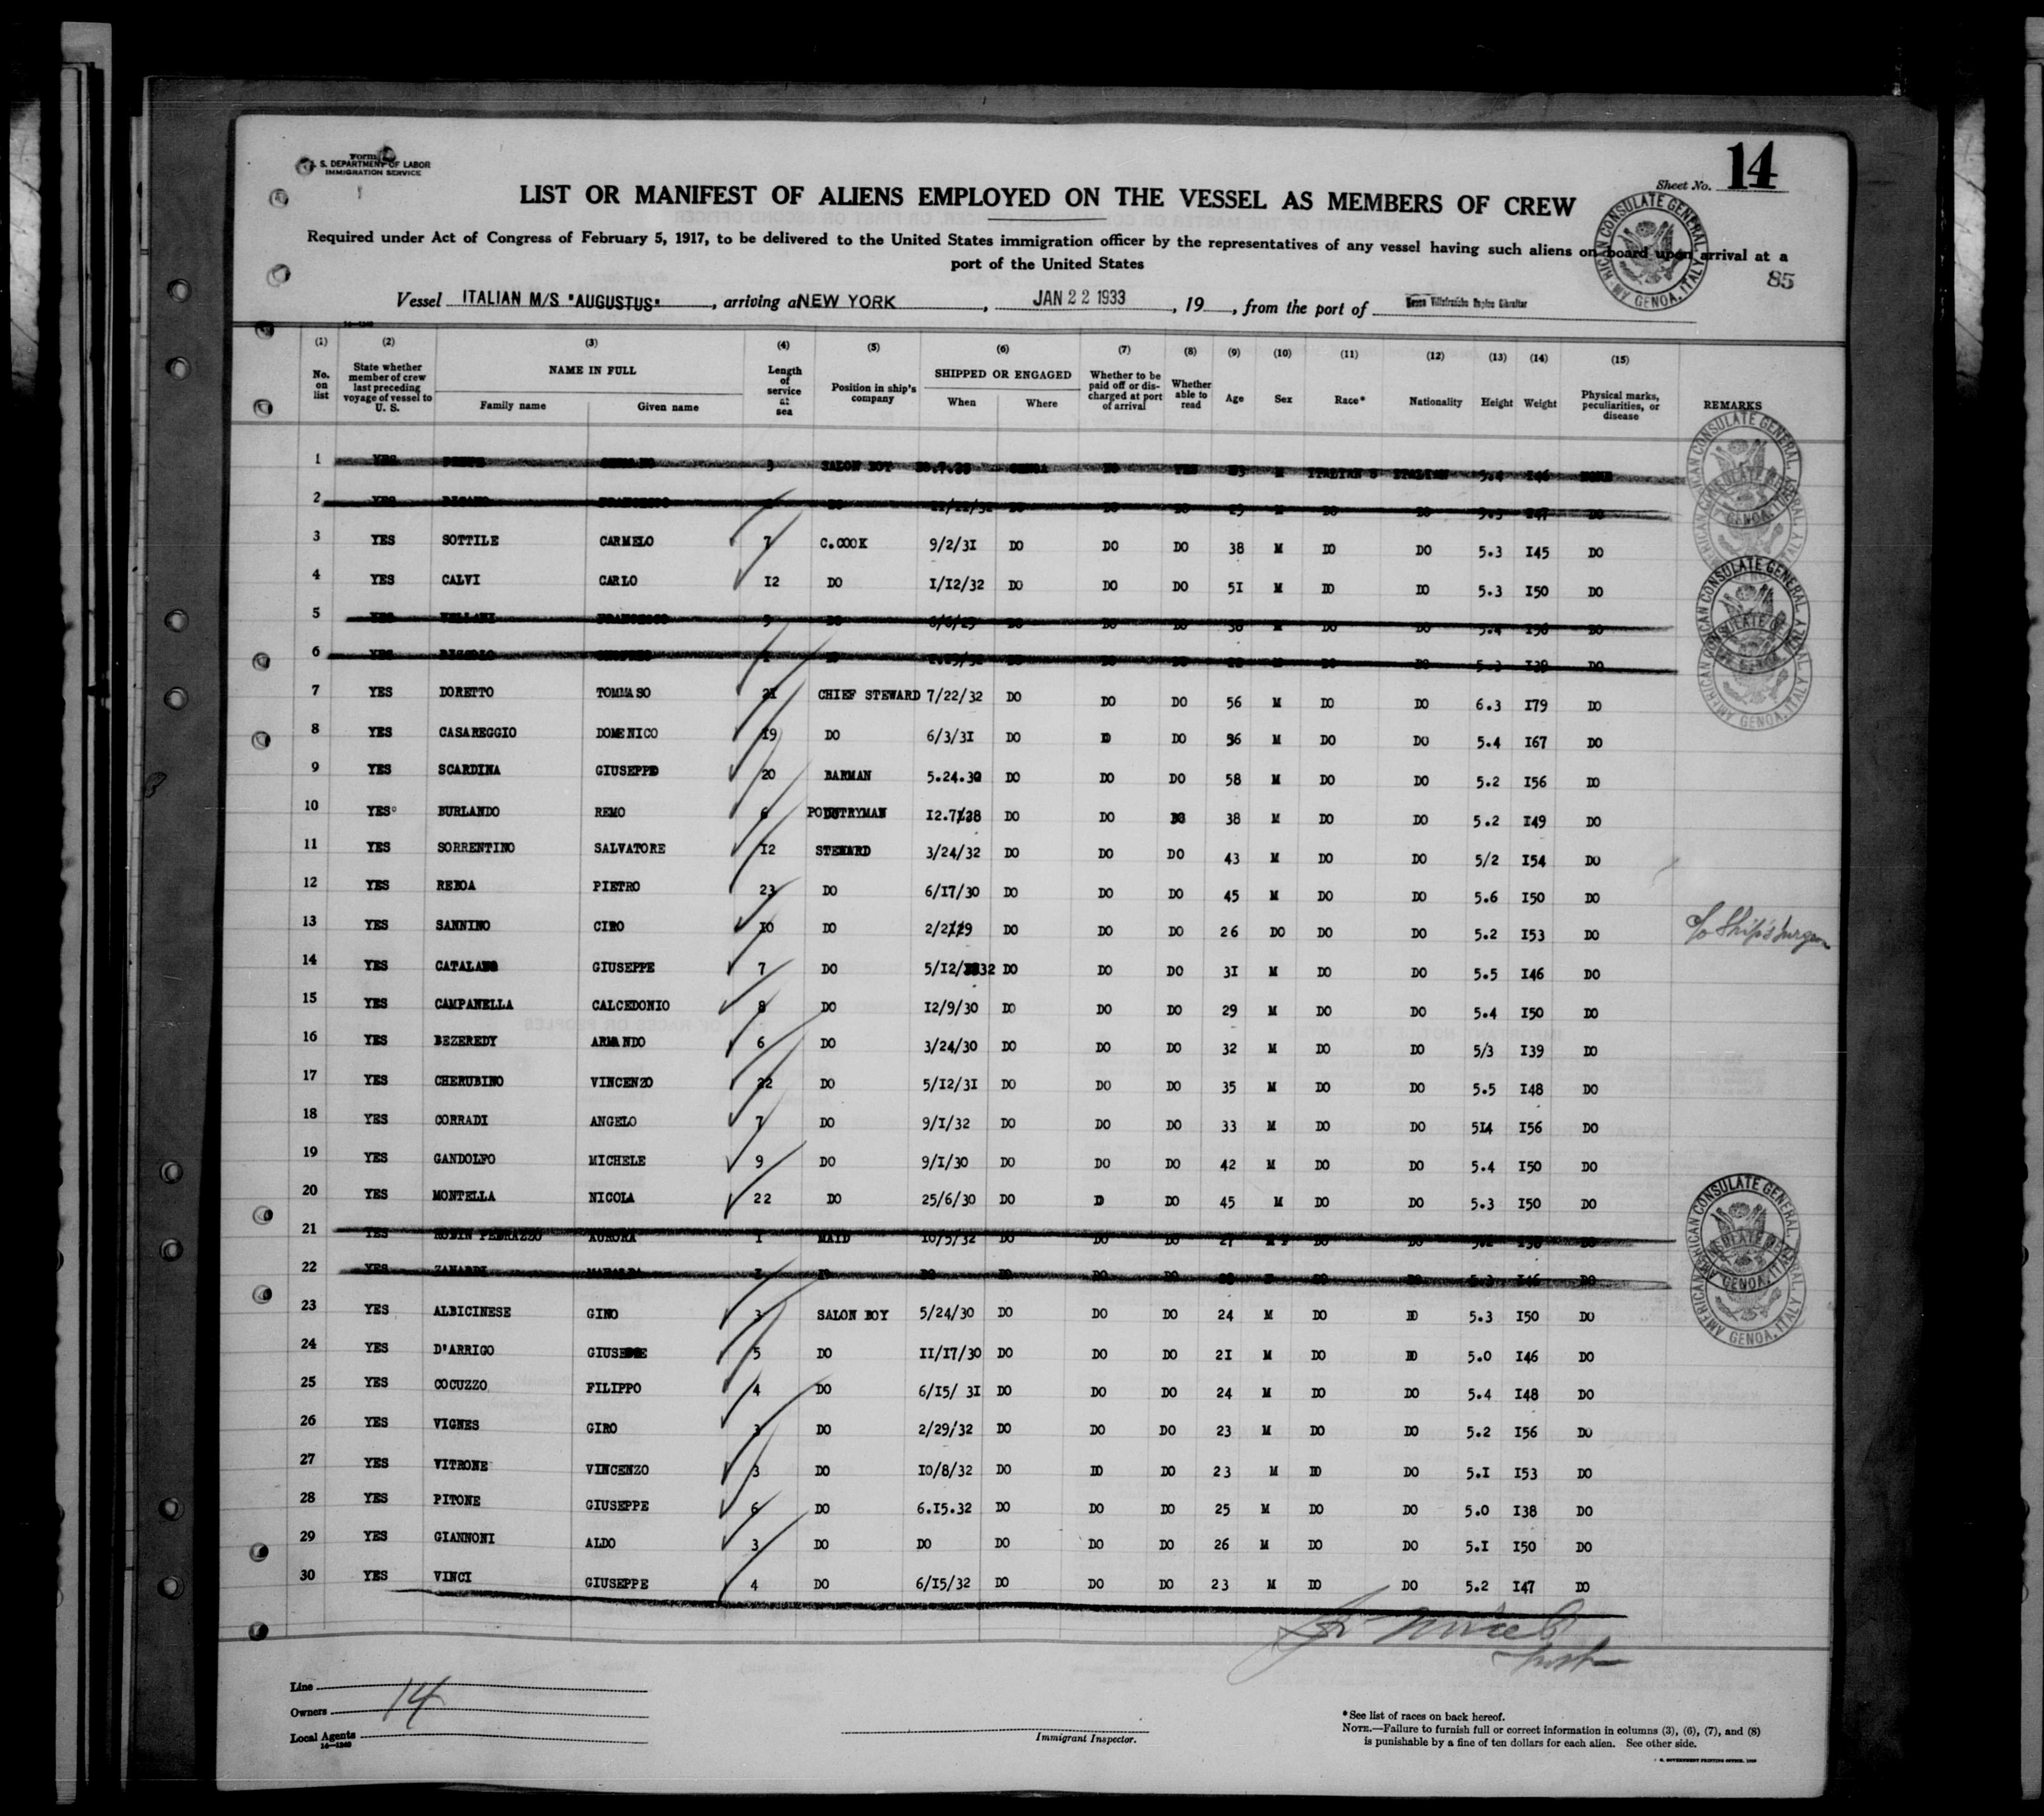 Form
U. S. DEPARTMENT OF LABOR
IMMIGRATION SERVICE
Sheet No. 14
LIST OR MANIFEST OF ALIENS EMPLOYED ON THE VESSEL AS MEMBERS OF CREW
Required under Act of Congress of February 5, 1917, to be delivered to the United States immigration officer by the representatives of any vessel having such aliens on board upon arrival at a
port of the United States
85
Vessel ITALIAN M/S "AUGUSTUS", arriving a NEW YORK, JAN 22 1933, 19, from the port of Villefranche Naples Gibraltar
AMERICAN CONSULATE GENERAL GENOA, ITALY
(1) (2) (3) (4) (5) (6) (7) (8) (9) (10) (11) (12) (13) (14) (15)
No. on list State whether member of crew last preceding voyage of vessel to U. S. NAME IN FULL Family name Given name Length of service at sea Position in ship's company SHIPPED OR ENGAGED When Where Whether to be paid off or discharged at port of arrival Whether able to read Age Sex Race* Nationality Height Weight Physical marks, peculiarities, or disease REMARKS
1 YES 3 SALON BOY GENOA NO YES 23 M ITALIAN S ITALIAN 5.4 I46 NONE
2 YES FRANCESCO DO DO DO DO 29 M DO DO 5.3 I47 DO
3 YES SOTTILE CARMELO 7 C.COOK 9/2/3I DO DO DO 38 M DO DO 5.3 I45 DO
4 YES CALVI CARLO I2 DO I/I2/32 DO DO DO 5I M DO DO 5.3 I50 DO
5 YES FRANCESCO DO 6/6/29 DO DO DO M DO DO 5.4 I56 DO
6 YES DO DO DO DO M DO DO 5.3 I39 DO
7 YES DORETTO TOMMASO 2I CHIEF STEWARD 7/22/32 DO DO DO 56 M DO DO 6.3 I79 DO
8 YES CASAREGGIO DOMENICO I9 DO 6/3/3I DO D DO 36 M DO DO 5.4 I67 DO
9 YES SCARDINA GIUSEPPE 20 BARMAN 5.24.30 DO DO DO 58 M DO DO 5.2 I56 DO
10 YES BURLANDO REMO 6 I2.7.28 DO DO DO 38 M DO DO 5.2 I49 DO
11 YES SORRENTINO SALVATORE I2 STEWARD 3/24/32 DO DO DO 43 M DO DO 5/2 I54 DO
12 YES REBOA PIETRO 23 DO 6/I7/30 DO DO DO 45 M DO DO 5.6 I50 DO
13 YES SANNINO CIRO I0 DO 2/2/29 DO DO DO 26 DO DO DO 5.2 I53 DO c/o Ship's Surgeon
14 YES CATALANO GIUSEPPE 7 DO 5/I2/32 DO DO DO 3I M DO DO 5.5 I46 DO
15 YES CAMPANELLA CALCEDONIO 8 DO I2/9/30 DO DO DO 29 M DO DO 5.4 I50 DO
16 YES BEZEREDY ARMANDO 6 DO 3/24/30 DO DO DO 32 M DO DO 5/3 I39 DO
17 YES CHERUBINO VINCENZO 22 DO 5/I2/3I DO DO DO 35 M DO DO 5.5 I48 DO
18 YES CORRADI ANGELO 7 DO 9/I/32 DO DO DO 33 M DO DO 5I4 I56 DO
19 YES GANDOLFO MICHELE 9 DO 9/I/30 DO DO DO 42 M DO DO 5.4 I50 DO
20 YES MONTELLA NICOLA 22 DO 25/6/30 DO D DO 45 M DO DO 5.3 I50 DO
21 YES ROBIN PEDRAZZO AURORA I MAID I0/5/32 DO DO DO 27 F DO DO 5.2 I30 DO
22 YES ZANARDI MAFALDA I DO DO DO DO DO DO DO 5.3 I46 DO
23 YES ALBICINESE GINO 3 SALON BOY 5/24/30 DO DO DO 24 M DO D 5.3 I50 DO
24 YES D'ARRIGO GIUSEPPE 5 DO II/I7/30 DO DO DO 2I M DO DO 5.0 I46 DO
25 YES COCUZZO FILIPPO 4 DO 6/I5/ 3I DO DO DO 24 M DO DO 5.4 I48 DO
26 YES VIGNES GIRO 3 DO 2/29/32 DO DO DO 23 M DO DO 5.2 I56 DO
27 YES VITRONE VINCENZO 3 DO I0/8/32 DO DO DO 23 M DO DO 5.I I53 DO
28 YES PITONE GIUSEPPE 6 DO 6.I5.32 DO DO DO 25 M DO DO 5.0 I38 DO
29 YES GIANNONI ALDO 3 DO DO DO DO DO 26 M DO DO 5.I I50 DO
30 YES VINCI GIUSEPPE 4 DO 6/I5/32 DO DO DO 23 M DO DO 5.2 I47 DO
Line
Owners 14
Local Agents
14—1240
Immigrant Inspector.
*See list of races on back hereof.
NOTE.—Failure to furnish full or correct information in columns (3), (6), (7), and (8)
is punishable by a fine of ten dollars for each alien. See other side.